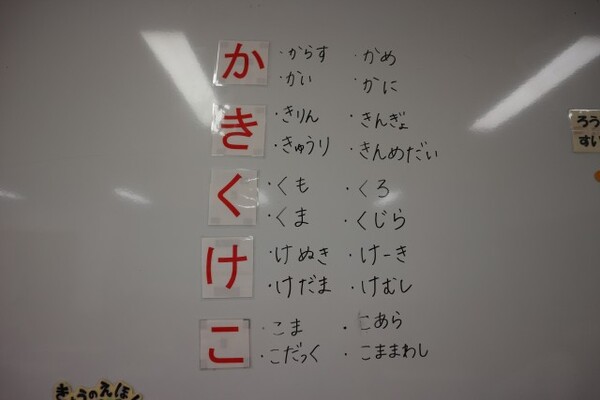 か
・からす ・かめ
・かい ・かに
き
・きりん ・きんぎょ
・きゅうり ・きんめだい
く
・くも ・くろ
・くま ・くじら
け
・けぬき ・けーき
・けだま ・けむし
こ
・こま ・こあら
・こだっく ・こままわし
ろう
すい
きょうのえほん